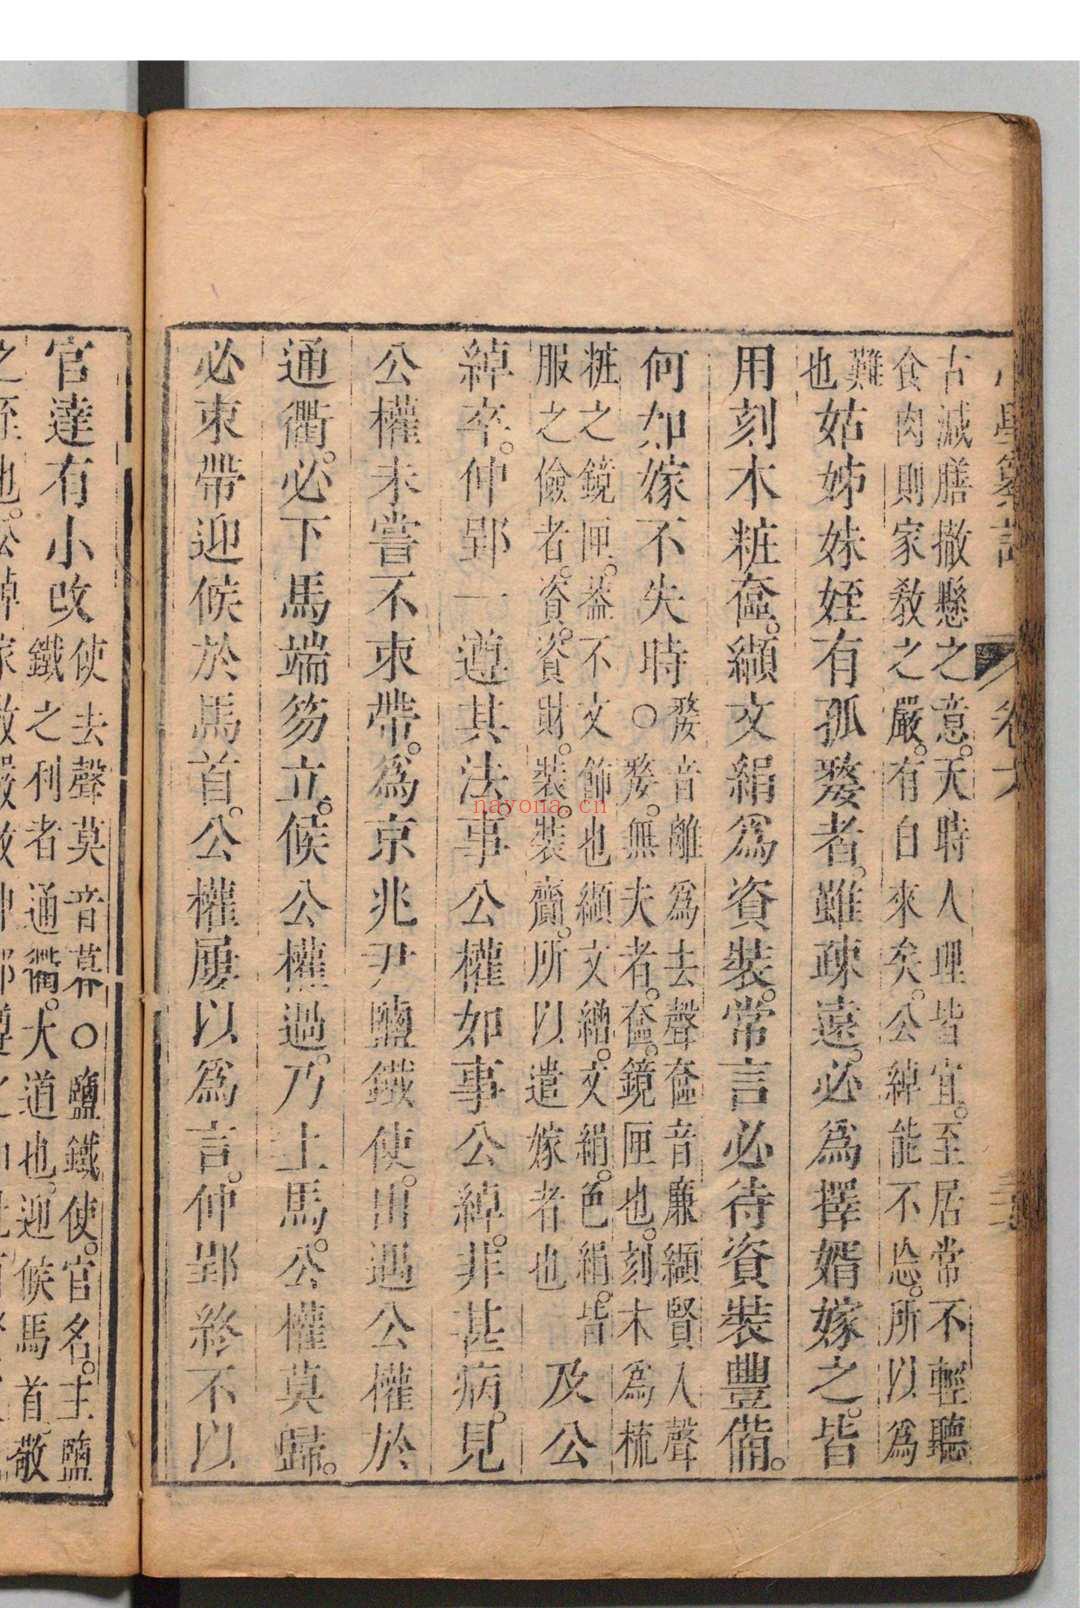 小學纂註 卷六
古減膳撤懸之意。天時人理皆宜。至居常不輕聽
食肉則家敎之嚴。有自來矣。公綽能不忘。所以爲
難
也
姑姊妹姪有孤嫠者。雖疎遠。必爲擇婿嫁之。皆
用刻木粧奩。纈文絹爲資裝。常言必待資裝豐備。
何如嫁不失時
○嫠音離爲去聲奩音廉纈賢入聲
嫠。無夫者。奩。鏡匣也。刻木爲梳
粧之鏡匣。葢不文飾也纈文繒。文絹。色絹。皆
服之儉者。資。資財。裝。裝齎。所以遣嫁者也
及公
綽卒。仲郢一遵其法。事公權如事公綽。非甚病。見
公權未嘗不束帶。爲京兆尹鹽鐵使。出遇公權於
通衢。必下馬端笏立。候公權過。乃上馬。公權莫歸。
必束帶迎候於馬首。公權屢以爲言。仲郢終不以
官達有小改
使去聲莫音慕○鹽鐵使。官名。主鹽
鐵之利者通衢。大道也。迎候馬首。敬
之至也。公綽家敎嚴
nayona.cn